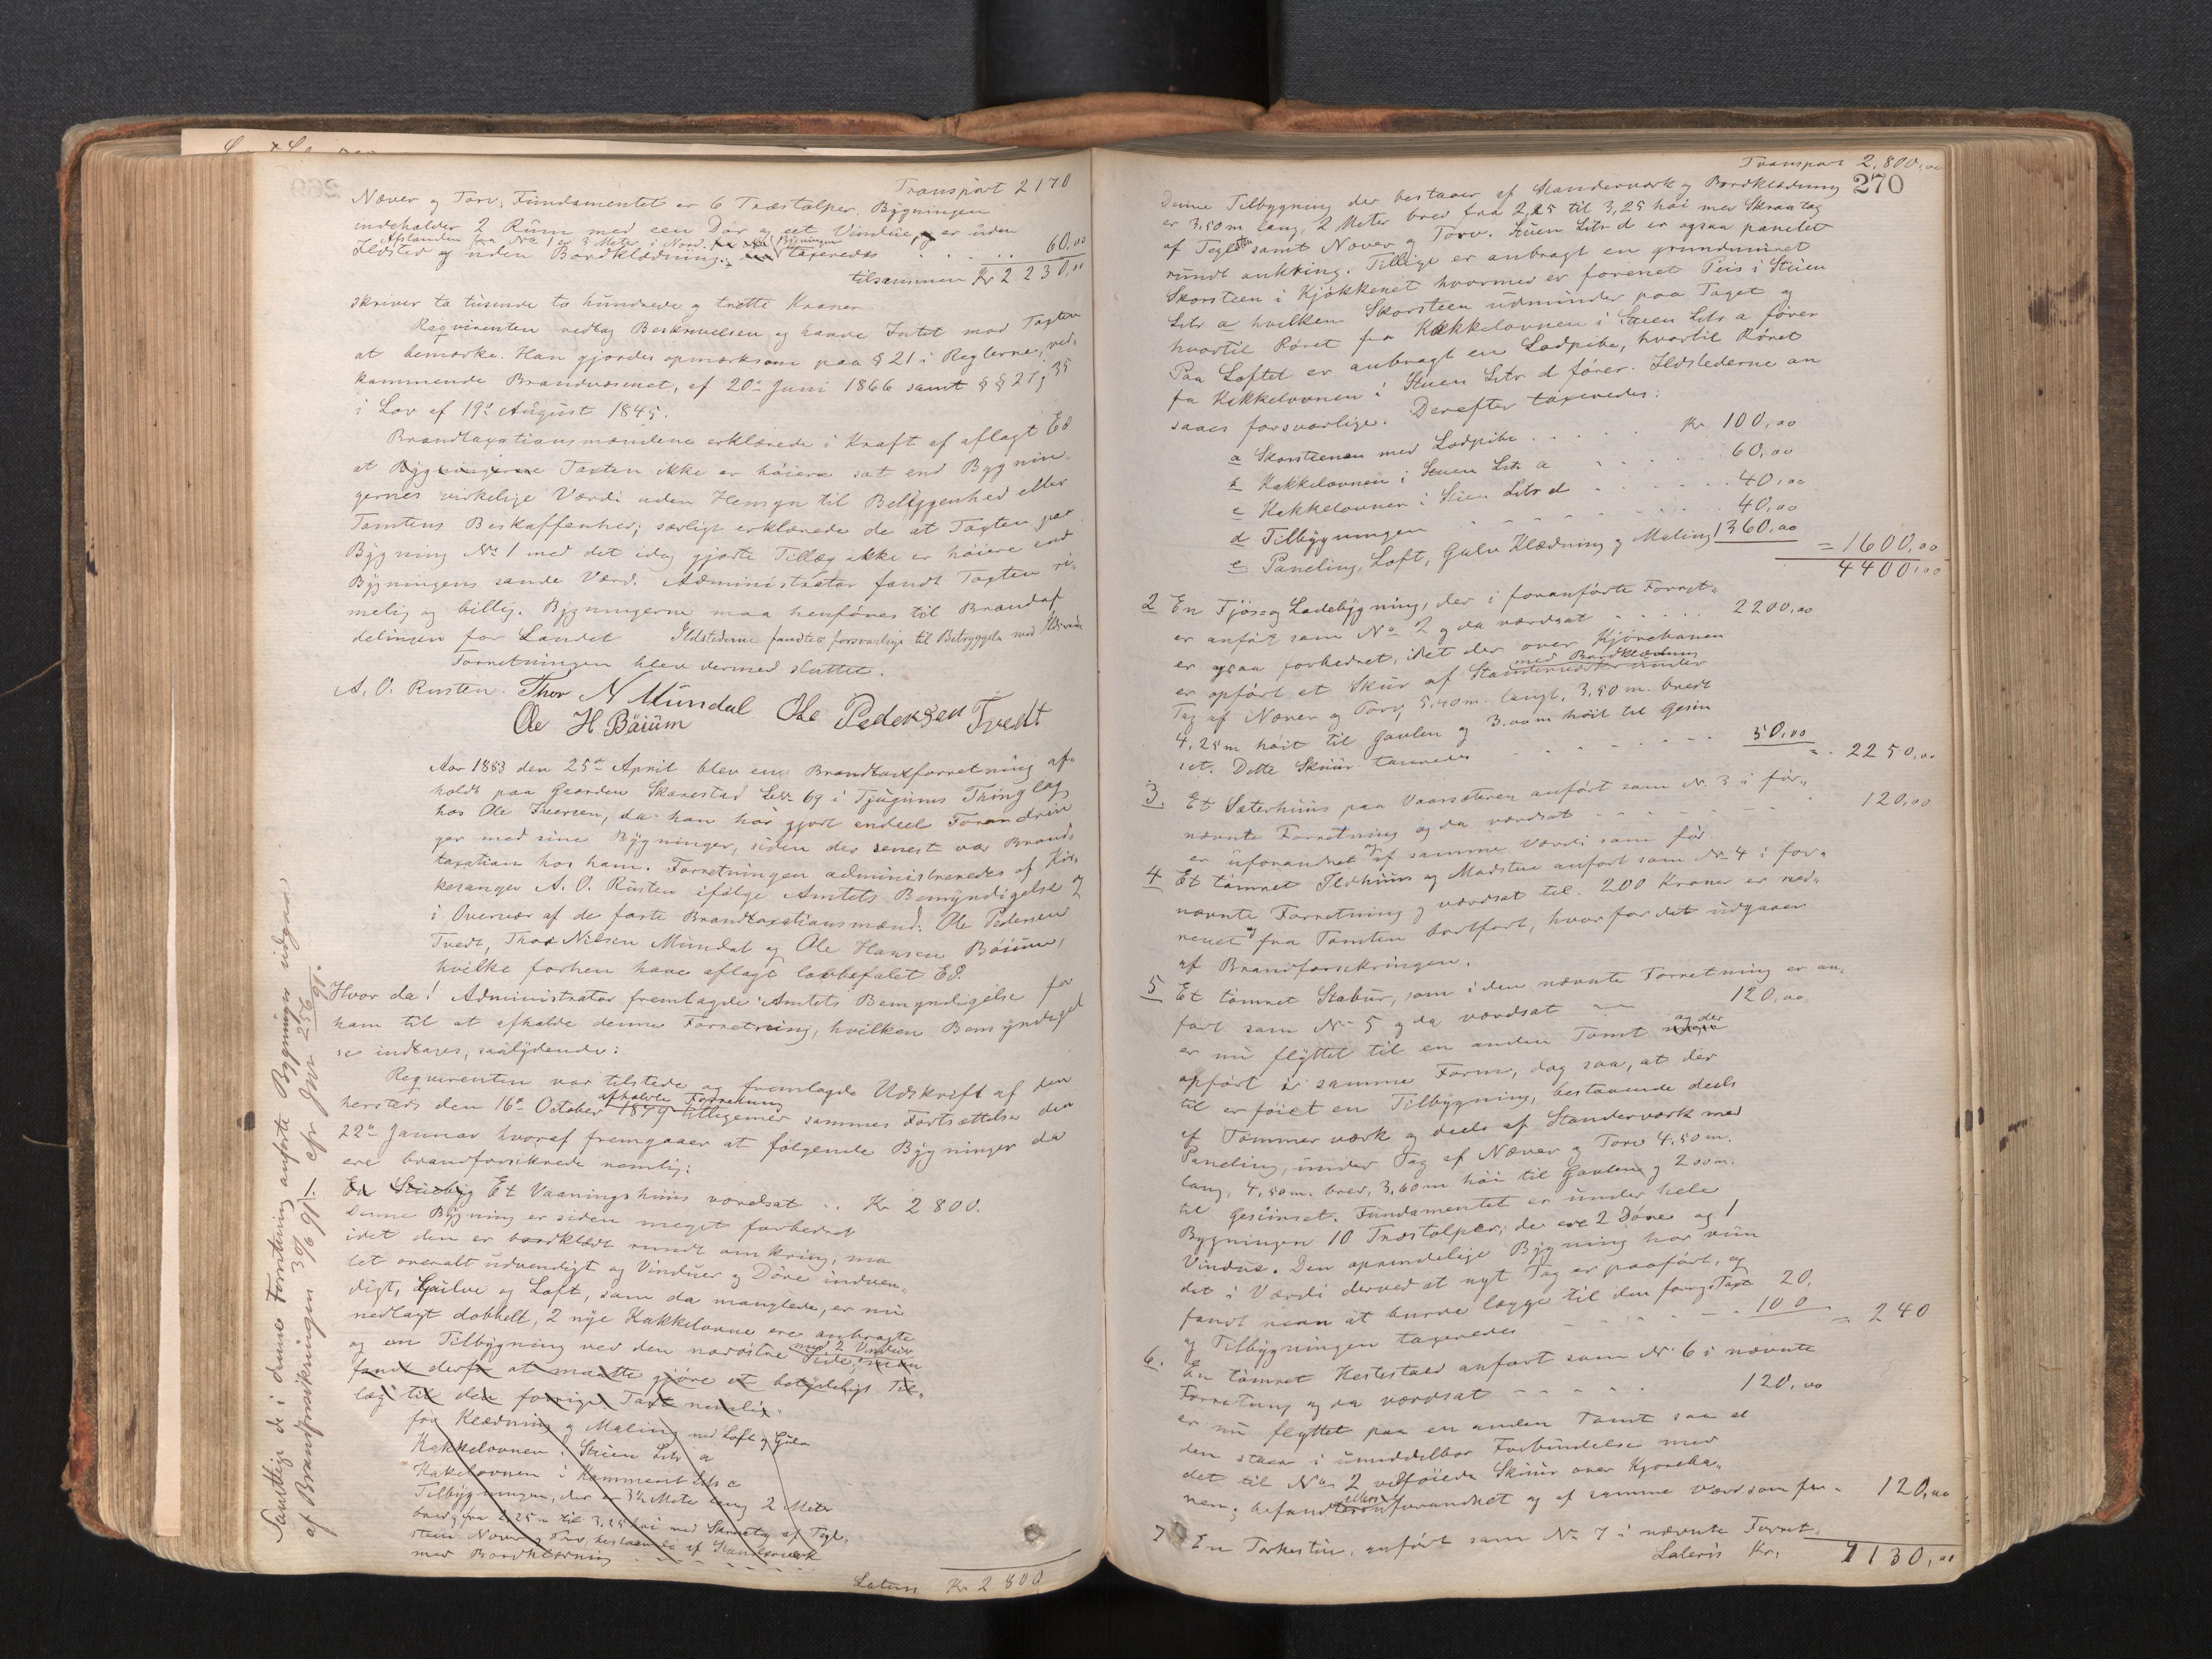 Transport 2170
Næver og Torv, Fundamentet er 6 Træstolper. Bygningen
indeholder 2 Rum med een Dør og eet Vindue, og er uden
Afstanden fra No 1 er 3 Meter i Nord. Bygningen
Ildsted og uden Bordklædning. taxeredes . . . . 60,00
tilsammen Kr 2230,00
skriver to tusinde to hundrede og trette Kroner
Reqvirenten vedtog Beskrivelsen og havde Intet mod Taxten
at bemærke. Han gjordes opmærksom paa § 21 i Reglerne, ved-
kommende Brandvæsenet, af 20de Juni 1866 samt §§ 27 og 35
i Lov af 19de August 1845.
Brandtaxationsmændene erklærede i Kraft af aflagt Ed
at Bygningerne Taxten ikke er høiere sat end Bygnin-
gernes virkelige Værdi uden Hensyn til Beliggenhed eller
Tomtens Beskaffenhed; særligt erklærede de at Taxten paa
Bygning No 1 med det idag gjorte Tillæg ikke er høiere end
Bygningens sande Værd. Administrator fandt Taxten ri-
melig og billig. Bygningerne maa henføres til Brandaf
delingen for Landet Ildstederne fandtes forsvarlige til Betryggelse mod Ildsvaade
Forretningen blev dermed sluttet.
A. O. Rusten. Thor N Mundal Ole Pedersen Tvedt
Ole H. Bøium
Aar 1883 den 25de April blev en Brandtaxtforretning af-
holdt paa Gaarden Skarestad Løbe No 69 i Tjugums Thinglag
hos Ole Iversen, da han har gjort endeel Forandrin
ger med sine Bygninger, siden der senest var Brand-
taxation hos ham. Forretningen administreredes af Kir-
kesanger A. O. Rusten ifølge Amtets Bemyndigelse og
i Overvær af de faste Brandtaxationsmænd: Ole Pedersen
Tvedt, Thor Nilsen Mundal og Ole Hansen Bøium,
hvilke forhen have aflagt lovbefalet Ed.
Hvor da! Administrator fremlagde Amtets Bemyndigelse for
ham til at afholde denne Forretning, hvilken Bemyndigel
se indtages, saalydende:
Reqvirenten var tilstede og fremlagde Udskrift af den
afholdte Forretning
hersteds den 16de October 1879 tilligemed sammes Fortsættelse den
22de Januar hvoraf fremgaaer at følgende Bygninger da
ere brandforsikrede nemlig:
En Stuebyg Et Vaaningshuus værdsat . . Kr 2800.
Denne Bygning er siden meget forbedret
idet den er bordklædt rundt omkring, ma
let overalt udvendigt og Vinduer og Døre indven-
digt, Gulve og Loft, som da manglede, er nu
nedlagt dobbelt, 2 nye Kakkelovne ere anbragte
med 2 Vinduer
og en Tilbygning ved den nordøstre Side, man
fandt derfor at maatte gjøre et betydeligt Til-
læg til den forrige Taxt nemlig.
for Klædning og Maling med Loft og Gulv
Kakkelovnen i Stuen Litr a
Kakelovnen i Kammeret Litr c
Tilbygningen, der er 3½ Meter lang 2 Meter
bred og fra 2,25 m til 3,25 høi med Skraatag af Tegl-
steen Næver og Torv, bestaaende af Standerværk
med Bordklædning . . . . .
Lateris Kr 2800
Samtlige de i denne Forretning anførte Bygninger udgaaet
af Brandforsikringen 30/6 91 cfr Jnr 256/91.
Transport 2,800,00
270
Denne Tilbygning der bestaaer af Standerværk og Bordklædning
er 3,50 m lang, 2 Meter bred fra 2,25 til 3,25 høi med Skraatag
af Teglsten samt Næver og Torv. Stuen Litr d er ogsaa panelet
rundt omkring. Tillige er anbragt en grundmuret
Skorsteen i Kjøkkenet hvormed er forenet Peis i Stuen
Litr a hvilken Skorsteen udmunder paa Taget og
hvortil Røret fra Kakkelovnen i Stuen Litr a fører
Paa Loftet er anbragt en Lodpibe, hvortil Røret
fra Kakkelovnen i Stuen Litr d fører. Ildstederne an
saaes forsvarlige. Derefter taxeredes:
a Skorsteenen med Lodpibe . . . . Kr 100,00
b Kakkelovnen i Stuen Litr a . . . . 60,00
c Kakkelovnen i Stuen Litr d . . . . 40,00
d Tilbygningen . . . . 40,00
e Paneling, Loft, Gulv Klædning og Maling 1360,00 = 1600,00
4400,00
2 En Fjøs og Ladebygning, der i foranførte Forret-
er anført som No 2 og da værdsat . . . . 2200,00
er ogsaa forbedret, idet der over Kjørebanen
med Bordklædning
er opført et Skur af Standerværk under
Tag af Næver og Torv, 5,40 m. langt, 3,50 m. bredt
4,25 m høit til Gavlen og 3.00 m høit til Gesim
set. Dette Skuur taxeredes . . . . 50,00 = 2250,00
3. Et Sæterhuus paa Vaarsæteren anført som Nr 3 i før-
nævnte Forretning og da værdsat . . . . 120,00
er uforandret og af samme Værdi som før.
4 Et tømret Ildhuus og Madstue anført som No 4 i for-
nævnte Forretning og værdsat til 200 Kroner er ned-
revet og fra Tomten bortført, hvorfor det udgaaer
af Brandforsikringen.
5 Et tømret Stabur, som i den nævnte Forretning er an-
ført som No 5 og da værdsat . . 120,00
og der
er nu flyttet til en anden Tomt
opført i samme Form, dog saa, at der
til er føiet en Tilbygning, bestaaende deels
af Tømmerværk og deels af Standerværk med
Paneling, under Tag af Næver og Torv 4,50 m.
lang, 4,50 m. bred, 3,60 m høi til Gavlen og 2 00 m.
til Gesimset. Fundamentet er under hele
Bygningen 10 Træstolper; de ere 2 Døre og 1
Vindue. Den oprindelige Bygning har vun
det i Værdi derved at nyt Tag er paaført, og
fandt man at burde lægge til den forrige Taxt 20.
og Tilbygningen taxeredes . . . . 100 = 240
6. En tømret Hestestald anført som Nr 6 i nævnte
Forretning og da værdsat . . . . 120,00
er nu flyttet paa en anden Tomt saa at
den staar i umiddelbar Forbindelse med
det til No 2 vedføiede Skuur over Kjøreba-
nen; befandtes ellers uforandret og af samme Værd som før . 120,00
7 En Tørkestue, anført som No 7 i nævnte Forret-
Lateris Kr. 7130,00